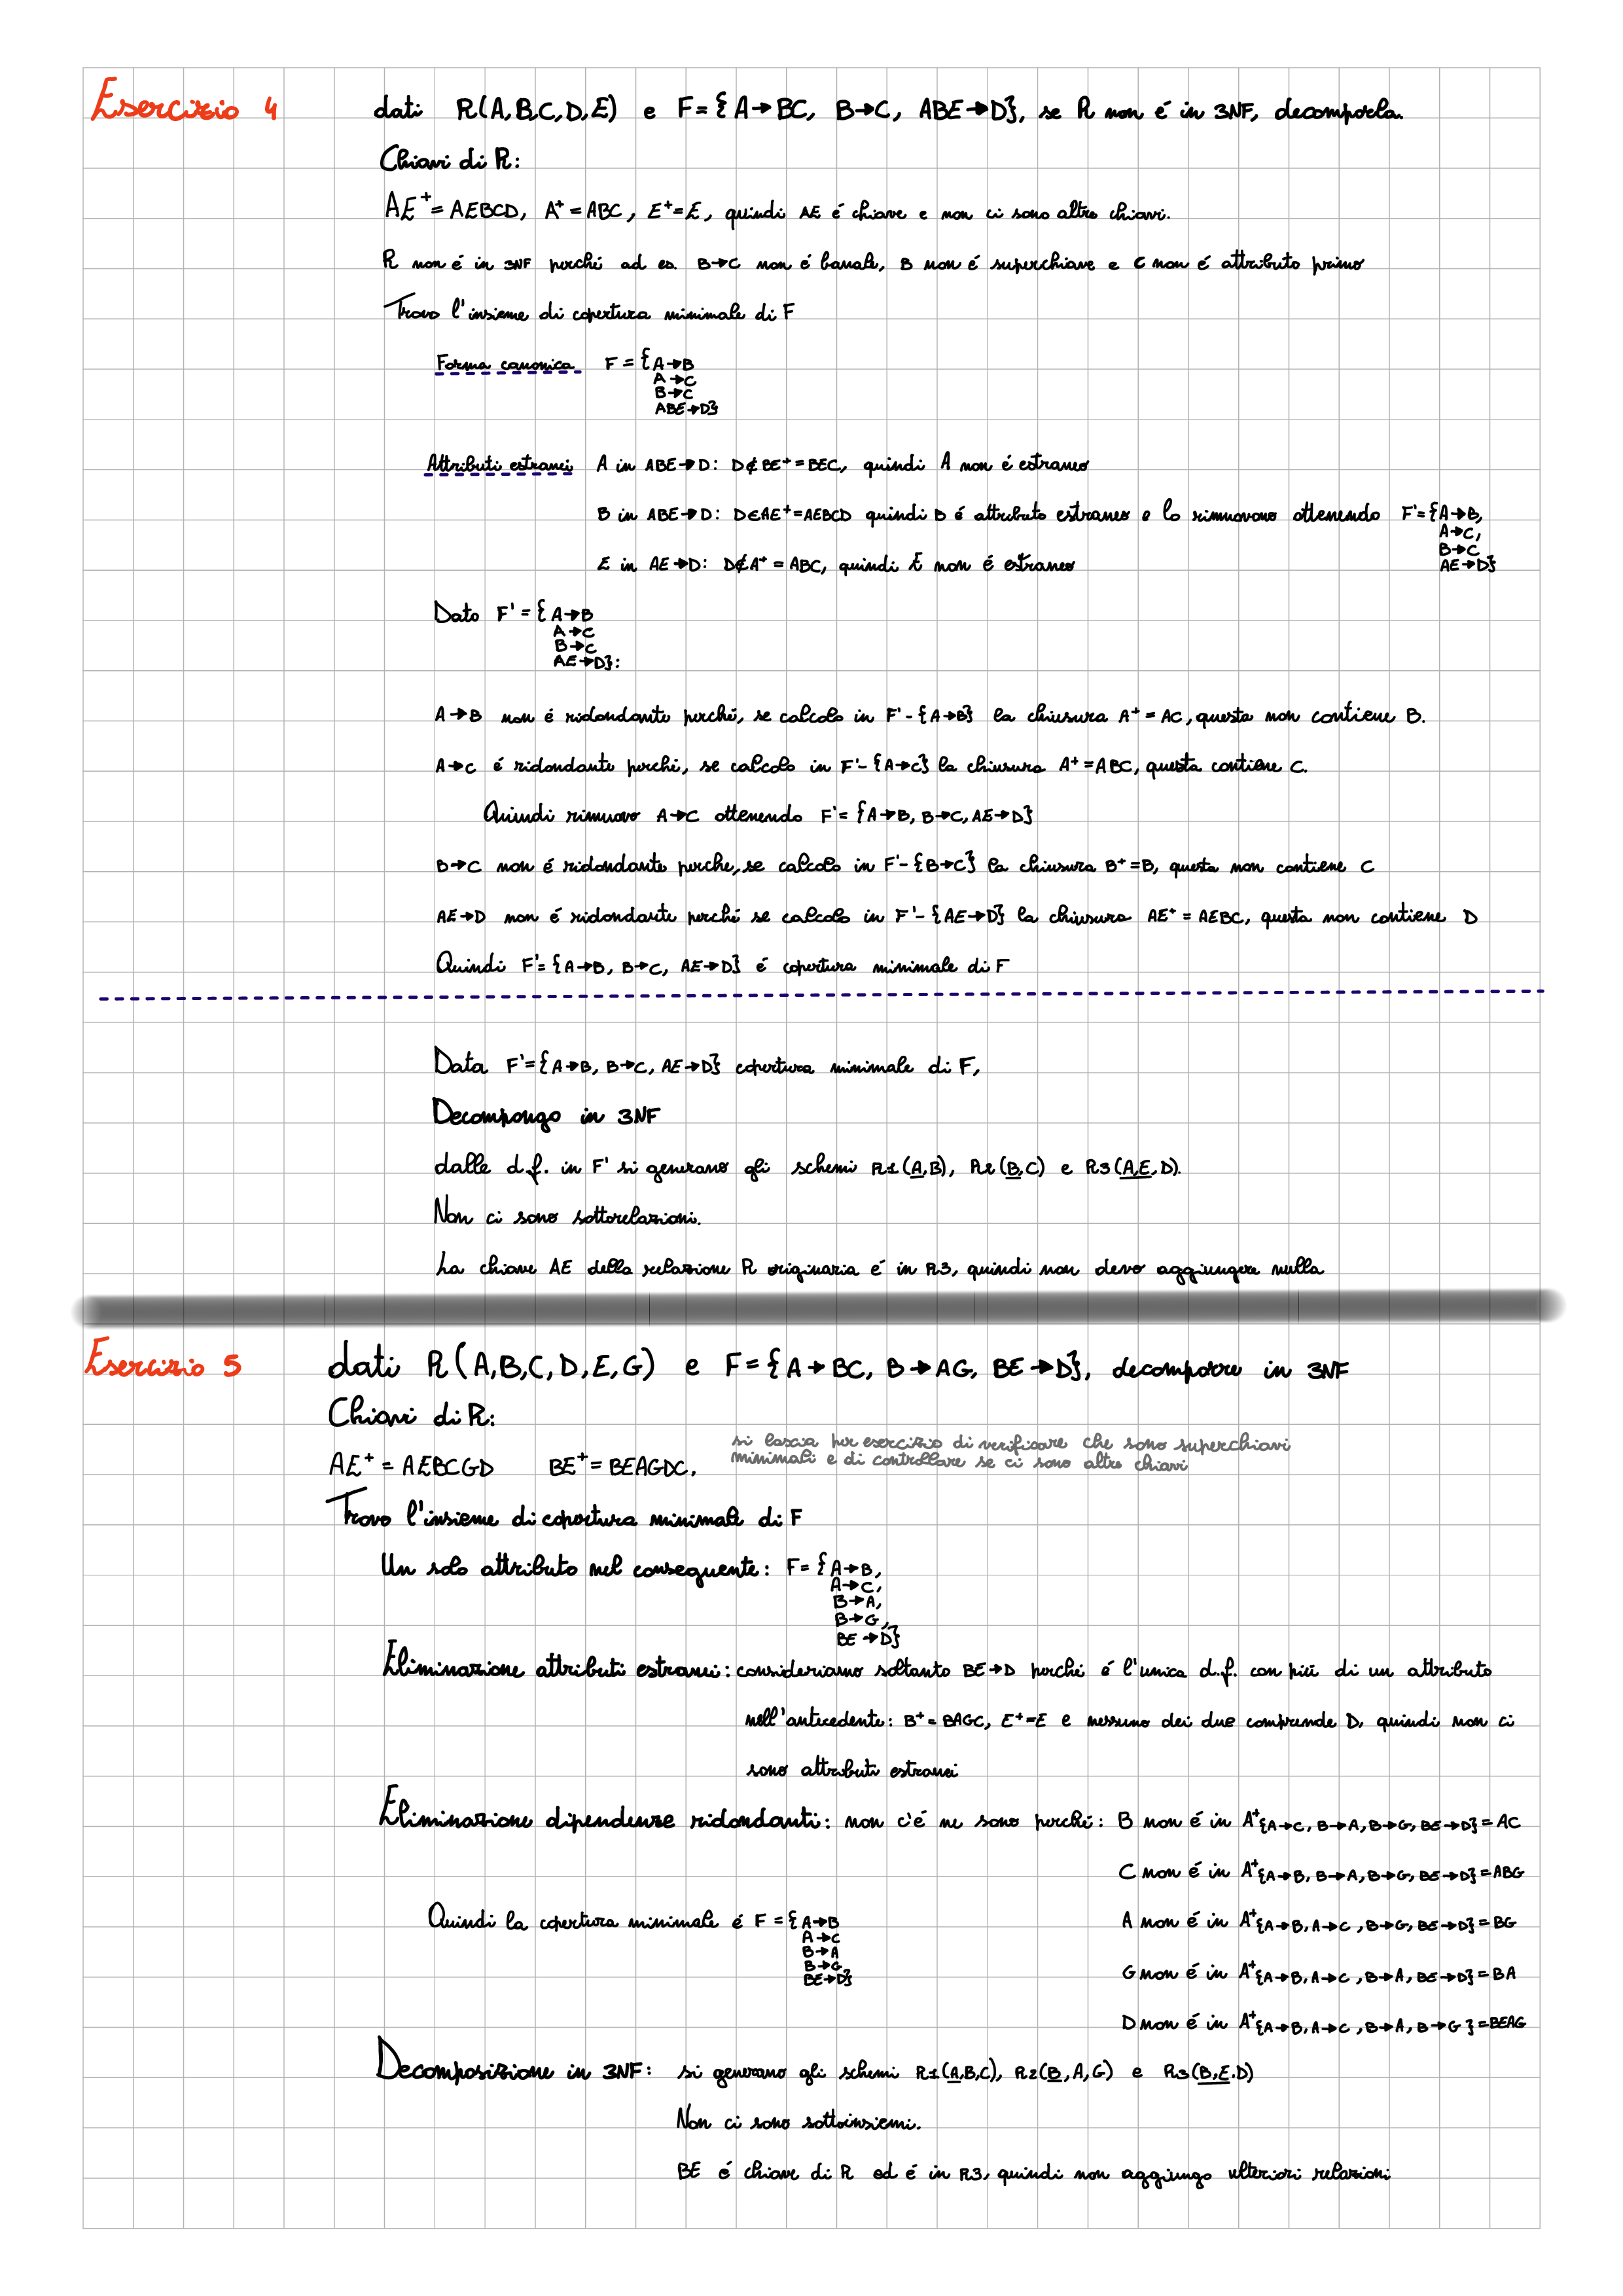 Esercizio 4 dati R(A,B,C,D,E) e F={A→BC, B→C, ABE→D}, se R non é in 3NF, decomporla.
Chiavi di R:
AE⁺=AEBCD, A⁺=ABC, E⁺=E, quindi AE é chiave e non ci sono altre chiavi.
R non é in 3NF perché ad es. B→C non é banale, B non é superchiave e C non é attributo primo
Trovo l'insieme di copertura minimale di F
Forma canonica F={A→B
A→C
B→C
ABE→D}
Attributi estranei A in ABE→D: D∉BE⁺=BEC, quindi A non é estraneo
B in ABE→D: D∈AE⁺=AEBCD quindi B é attributo estraneo e lo rimuovono ottenendo F'={A→B,
A→C,
B→C
AE→D}
E in AE→D: D∉A⁺=ABC, quindi E non é estraneo
Dato F'={A→B
A→C
B→C
AE→D}:
A→B non é ridondante perché, se calcolo in F'-{A→B} la chiusura A⁺=AC, questa non contiene B.
A→C é ridondante perché, se calcolo in F'-{A→C} la chiusura A⁺=ABC, questa contiene C.
Quindi rimuovo A→C ottenendo F'={A→B, B→C, AE→D}
B→C non é ridondante perche, se calcolo in F'-{B→C} la chiusura B⁺=B, questa non contiene C
AE→D non é ridondante perché se calcolo in F'-{AE→D} la chiusura AE⁺=AEBC, questa non contiene D
Quindi F'={A→B, B→C, AE→D} é copertura minimale di F
Data F'={A→B, B→C, AE→D} copertura minimale di F,
Decompongo in 3NF
dalle d.f. in F' si generano gli schemi R1(A,B), R2(B,C) e R3(A,E,D).
Non ci sono sottorelazioni.
La chiave AE della relazione R originaria é in R3, quindi non devo aggiungere nulla
Esercizio 5 dati R(A,B,C,D,E,G) e F={A→BC, B→AG, BE→D}, decomporre in 3NF
Chiavi di R:
si lascia per esercizio di verificare che sono superchiavi
minimali e di controllare se ci sono altre chiavi
AE⁺=AEBCGD BE⁺=BEAGDC.
Trovo l'insieme di copertura minimale di F
Un solo attributo nel conseguente: F={A→B,
A→C,
B→A,
B→G,
BE→D}
Eliminazione attributi estranei: consideriamo soltanto BE→D perché é l'unica d.f. con piú di un attributo
nell'antecedente: B⁺=BAGC, E⁺=E e nessuno dei due comprende D, quindi non ci
sono attributi estranei
Eliminazione dipendenze ridondanti: non c'é ne sono perché: B non é in A⁺{A→C, B→A, B→G, BE→D}=AC
C non é in A⁺{A→B, B→A, B→G, BE→D}=ABG
Quindi la copertura minimale é F={A→B
A→C
B→A
B→G
BE→D}
A non é in A⁺{A→B, A→C, B→G, BE→D}=BG
G non é in A⁺{A→B, A→C, B→A, BE→D}=BA
D non é in A⁺{A→B, A→C, B→A, B→G}=BEAG
Decomposizione in 3NF: si generano gli schemi R1(A,B,C), R2(B,A,G) e R3(B,E,D)
Non ci sono sottoinsiemi.
BE é chiave di R ed é in R3, quindi non aggiungo ulteriori relazioni